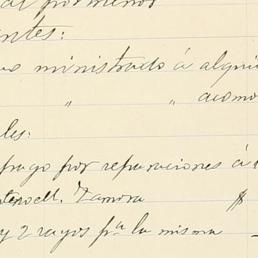 al por menos
ntes:
ministrado á alqui
" " acomo
les:
pago por reparaciones á
Zamora $
y 2 rayos pª la misma